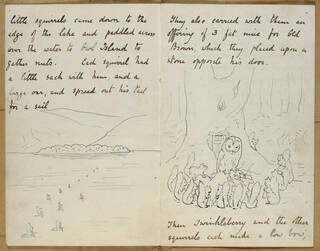 little squirrels came down to the
edge of the lake and peddled across
over the water to Owl Island to
gather nuts. Each squirrel had
a little sack with him, and a
large oar, and spread out his tail
for a sail
They also carried with them an
offering of 3 fat mice for Old
Brown, which they placed upon a
stone opposite his door.
Then Twinkleberry and the other
squirrels each made a low bow,